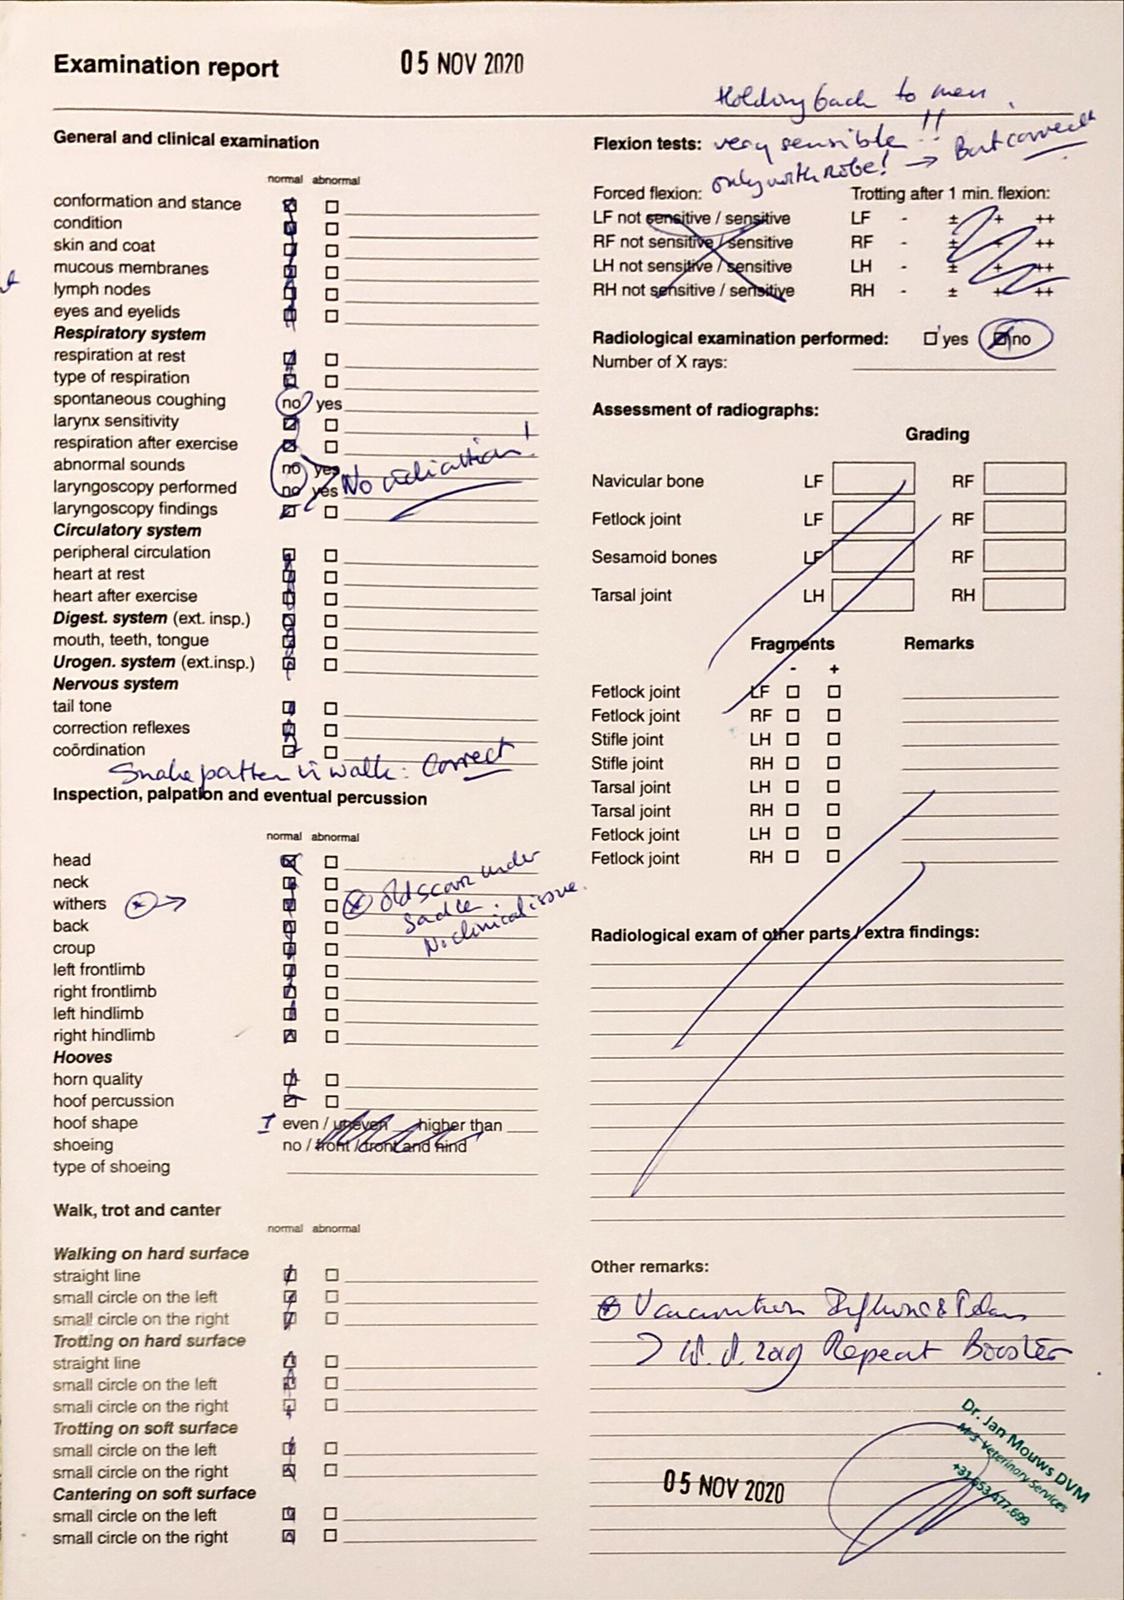 Examination report
05 NOV 2020
General and clinical examination
normal abnormal
conformation and stance
condition
skin and coat
mucous membranes
lymph nodes
eyes and eyelids
Respiratory system
respiration at rest
type of respiration
spontaneous coughing no yes
larynx sensitivity
respiration after exercise
abnormal sounds no yes
laryngoscopy performed no yes No indication!
laryngoscopy findings
Circulatory system
peripheral circulation
heart at rest
heart after exercise
Digest. system (ext. insp.)
mouth, teeth, tongue
Urogen. system (ext.insp.)
Nervous system
tail tone
correction reflexes
coördination
Snake patten in walk: Correct
Inspection, palpation and eventual percussion
normal abnormal
head
neck
withers
old scar under
saddle.
No clinical issue.
back
croup
left frontlimb
right frontlimb
left hindlimb
right hindlimb
Hooves
horn quality
hoof percussion
hoof shape even / uneven higher than
shoeing no / front / front and hind
type of shoeing
Walk, trot and canter
normal abnormal
Walking on hard surface
straight line
small circle on the left
small circle on the right
Trotting on hard surface
straight line
small circle on the left
small circle on the right
Trotting on soft surface
small circle on the left
small circle on the right
Cantering on soft surface
small circle on the left
small circle on the right
Holding back to men.
Flexion tests: very sensible!!
only with robe! → But correct
Forced flexion: Trotting after 1 min. flexion:
LF not sensitive / sensitive LF - ± + ++
RF not sensitive / sensitive RF - ± + ++
LH not sensitive / sensitive LH - ± + ++
RH not sensitive / sensitive RH - ± + ++
Radiological examination performed: yes no
Number of X rays:
Assessment of radiographs:
Grading
Navicular bone LF RF
Fetlock joint LF RF
Sesamoid bones LF RF
Tarsal joint LH RH
Fragments Remarks
- +
Fetlock joint LF
Fetlock joint RF
Stifle joint LH
Stifle joint RH
Tarsal joint LH
Tarsal joint RH
Fetlock joint LH
Fetlock joint RH
Radiological exam of other parts / extra findings:
Other remarks:
Repeat Booster
05 NOV 2020
Dr. Jan Mouws DVM
Veterinary Services